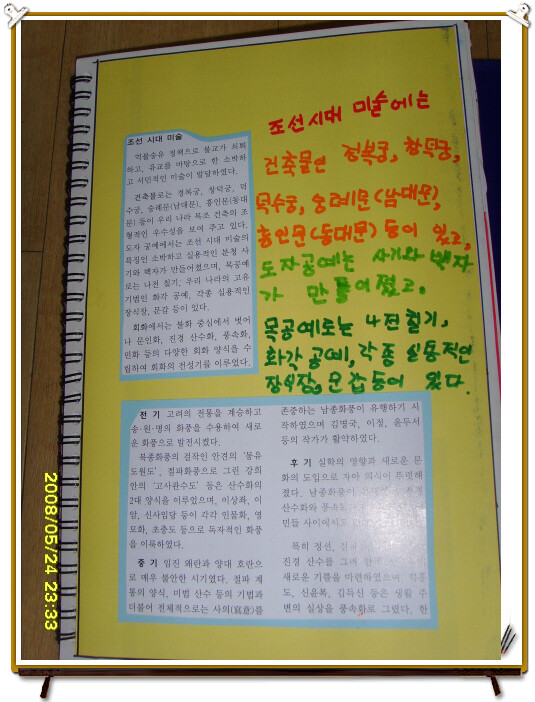 조선 시대 미술
억불숭유 정책으로 불교가 쇠퇴
하고, 유교를 바탕으로 한 소박하
고 서민적인 미술이 발달하였다.
건축물로는 경복궁, 창덕궁, 덕
수궁, 숭례문(남대문), 흥인문(동대
문) 등이 우리 나라 목조 건축의 조
형적인 우수성을 보여 주고 있다.
도자 공예에서는 조선 시대 미술의
특징인 소박하고 실용적인 분청 사
기와 백자가 만들어졌으며, 목공예
로는 나전 칠기, 우리 나라의 고유
기법인 화각 공예, 각종 실용적인
장식장, 문갑 등이 있다.
회화에서는 불화 중심에서 벗어
나 문인화, 진경 산수화, 풍속화,
민화 등의 다양한 회화 양식을 수
립하여 회화의 전성기를 이루었다.
조선시대 미술에는
건축물엔 경복궁, 창덕궁,
덕수궁, 숭례문(남대문),
흥인문(동대문) 등이 있고,
도자공예는 사기와 백자
가 만들어졌고.
목공예로는 나전칠기,
화각 공예, 각종 실용적인
장식장, 문갑등이 있다.
전 기 고려의 전통을 계승하고
송·원·명의 화풍을 수용하여 새로
운 화풍으로 발전시켰다.
북종화풍의 걸작인 안견의 '몽유
도원도', 절파화풍으로 그린 강희
안의 '고사관수도' 등은 산수화의
2대 양식을 이루었으며, 이상좌, 이
암, 신사임당 등이 각각 인물화, 영
모화, 초충도 등으로 독자적인 화풍
을 이룩하였다.
중 기 임진 왜란과 양대 호란으
로 매우 불안한 시기였다. 절파 계
통의 양식, 미법 산수 등의 기법과
더불어 전체적으로는 사의(寫意)를
존중하는 남종화풍이 유행하기 시
작하였으며 김명국, 이정, 윤두서
등의 작가가 활약하였다.
후 기 실학의 영향과 새로운 문
화의 도입으로 자아 의식이 뚜렷해
졌다. 남종화풍이
산수화와 풍속
민들 사이에서도
특히 정선,
진경 산수를 그려
새로운 기틀을 마련하였으며,
도, 신윤복, 김득신 등은 생활 주
변의 실상을 풍속화로 그렸다. 한
2008/05/24 23:33